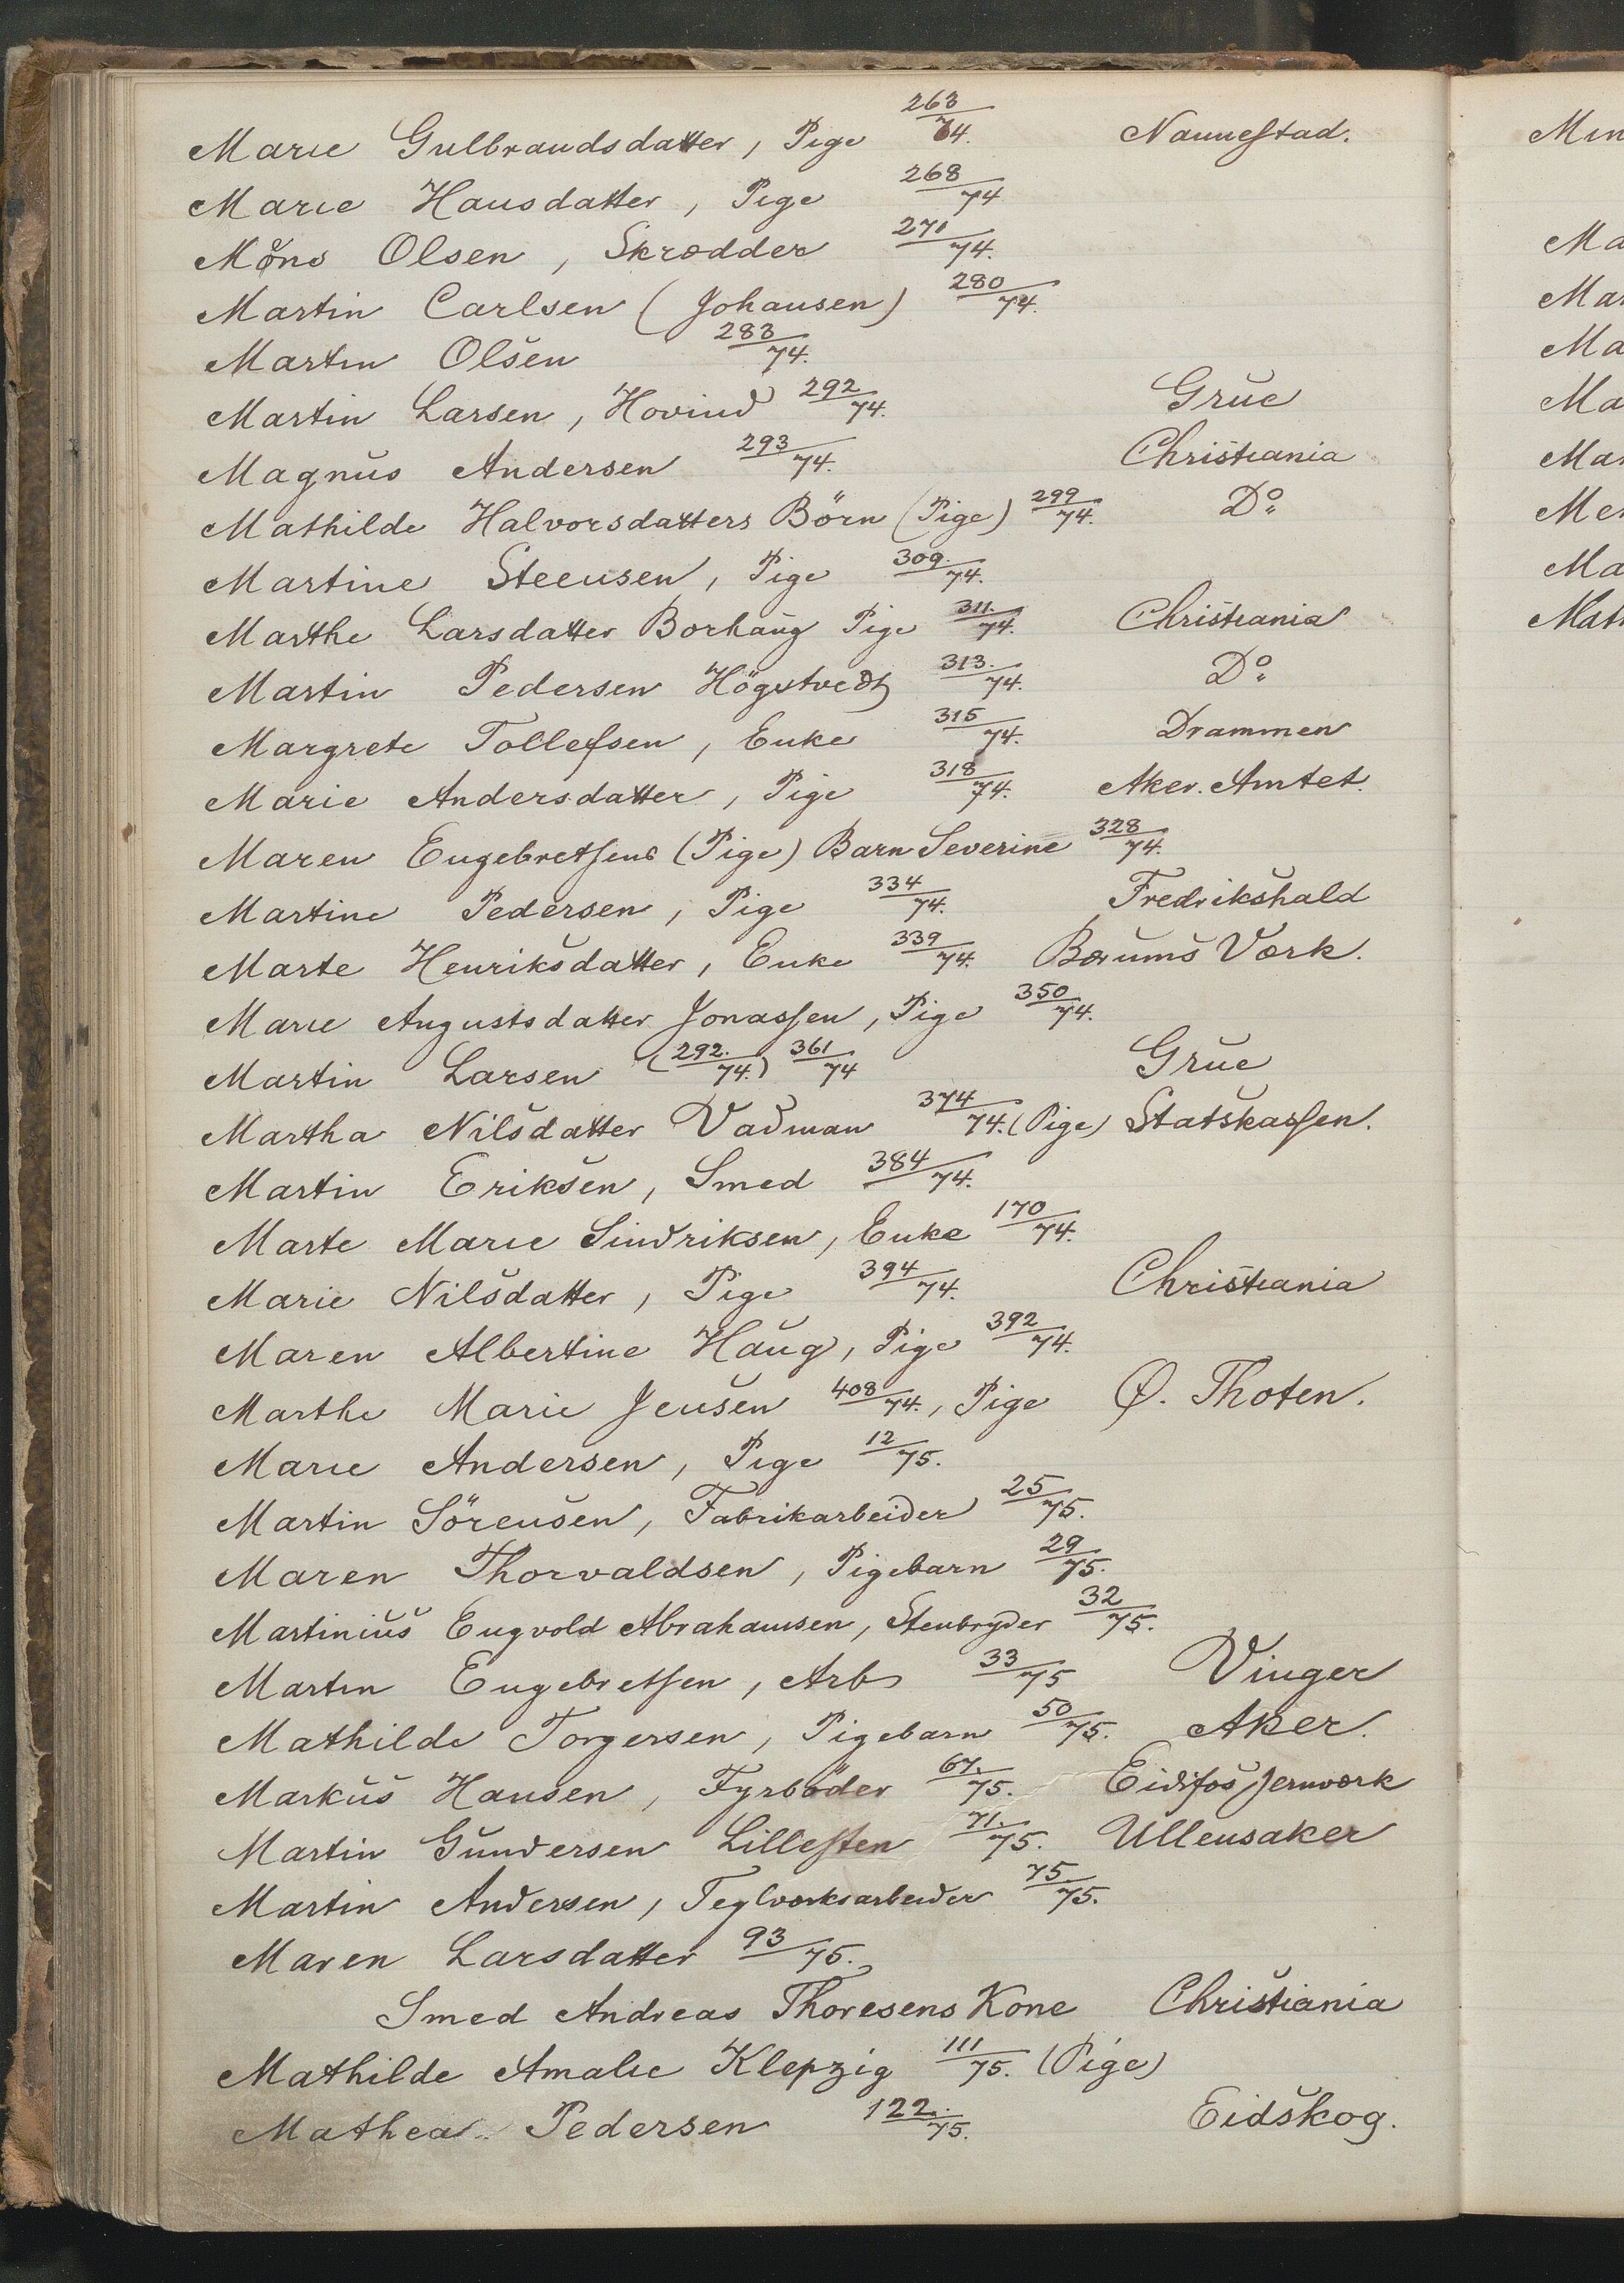 Marie Gulbrandsdatter, Pige 263/74. Nannestad.
Marie Hansdatter, Pige 268/74
Møns Olsen, Skrædder 271/74.
Martin Carlsen (Johansen) 280/74.
Martin Olsen 283/74.
Martin Larsen, Hovind 292/74. Grue
Magnus Andersen 293/74. Christiania
Mathilde Halvorsdatters Börn (Pige) 299/74. Do
Martine Steensen, Pige 309./74.
Marthe Larsdatter Borhaug Pige 311./74. Christiania
Martin Pedersen Högstvedt 313./74. Do
Margrete Tollefsen, Enke 315/74. Drammen
Marie Andersdatter, Pige 318/74. Aker. Amtet.
Maren Engebretsens (Pige) Barn Severine 328/74.
Martine Pedersen, Pige 334/74. Fredrikshald
Marte Henriksdatter, Enke 339/74. Bærums Værk.
Marie Augustsdatter Jonassen, Pige 350/74.
Martin Larsen (292./74.) 361/74 Grue
Martha Nilsdatter Vadman 374/74. (Pige) Statskassen.
Martin Eriksen, Smed 384/74.
Marte Marie Sindriksen, Enke 170/74.
Marie Nilsdatter, Pige 394/74. Christiania
Maren Albertine Haug, Pige 392/74.
Marthe Marie Jensen 408/74., Pige Ø. Thoten.
Marie Andersen, Pige 12/75.
Martin Sörensen, Fabrikarbeider 25/75.
Maren Thorvaldsen, Pigebarn 29/75.
Martinius Engvold Abrahamsen, Stenbryder 32/75.
Martin Engebretsen, Arb 33/75 Vinger
Mathilde Torgersen, Pigebarn 50/75. Aker.
Markus Hansen, Fyrböder 67./75. Eidsfos Jernværk
Martin Gundersen Lillesten 71./75. Ullensaker
Martin Andersen, Teglværksarbeider 75/75.
Maren Larsdatter 93/75.
Smed Andreas Thoresens Kone Christiania
Mathilde Amalie Klepzig 111/75. (Pige)
Mathea Pedersen 122./75. Eidskog.
Ma
Ma
Ma